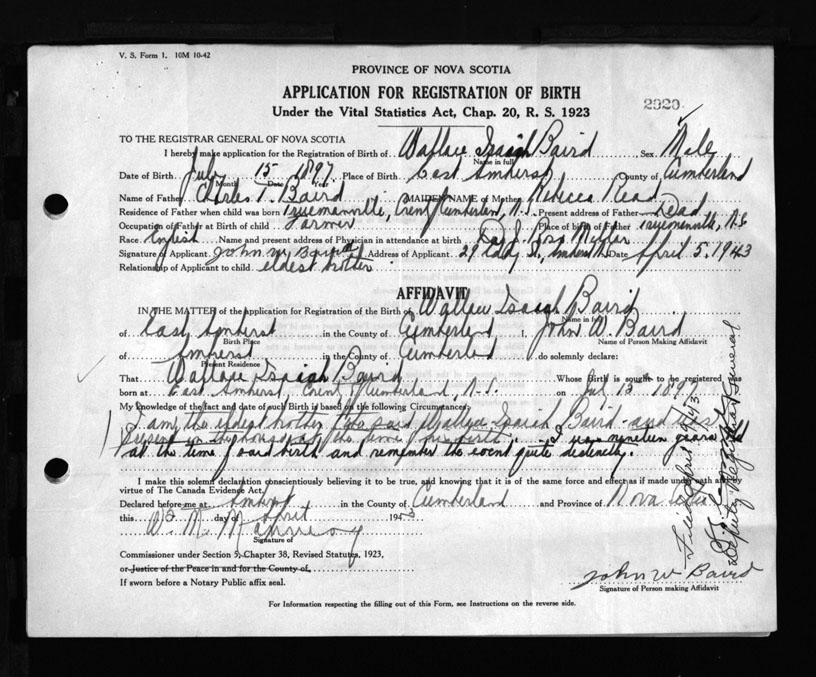 V. S. Form 1. 10M 10-42
PROVINCE OF NOVA SCOTIA
APPLICATION FOR REGISTRATION OF BIRTH
Under the Vital Statistics Act, Chap. 20, R. S. 1923
2920
TO THE REGISTRAR GENERAL OF NOVA SCOTIA
I hereby make application for the Registration of Birth of Wallace Isaiah Baird Sex Male
Name in full
Date of Birth July 15 1897 Place of Birth East Amherst County of Cumberland
Month Date Year
Name of Father Charles T. Baird MAIDEN NAME of Mother Rebecca Read
Residence of Father when child was born Truemanville, Cumberland, N.S. Present address of Father Dead
Occupation of Father at Birth of child Farmer Place of birth of Father Truemanville, N.S.
Race English Name and present address of Physician in attendance at birth Dr J. Ross Miller
Signature of Applicant John W. Baird Address of Applicant 29 St., Amherst Date April 5, 1943
Relationship of Applicant to child eldest brother
AFFIDAVIT
IN THE MATTER of the application for Registration of the Birth of Wallace Isaiah Baird
Name in full
of East Amherst in the County of Cumberland I, John W. Baird
Birth Place Name of Person Making Affidavit
of Amherst in the County of Cumberland do solemnly declare:
Present Residence
That Wallace Isaiah Baird Whose Birth is sought to be registered was
born at East Amherst, Cumberland, N.S. on July 15 1897
My knowledge of the fact and date of such Birth is based on the following Circumstances:
I am the eldest brother of the said Wallace Isaiah Baird and was
present in the house at the time of his birth. I was nineteen years
at the time of said birth and remember the event quite distinctly.
I make this solemn declaration conscientiously believing it to be true, and knowing that it is of the same force and effect as if made under oath and by
virtue of The Canada Evidence Act.
Declared before me at Amherst in the County of Cumberland and Province of Nova Scotia
this day of April 194
Signature of
Commissioner under Section 5, Chapter 38, Revised Statutes, 1923,
or Justice of the Peace in and for the County of
If sworn before a Notary Public affix seal.
John W Baird
Signature of Person making Affidavit
For Information respecting the filling out of this Form, see Instructions on the reverse side.
Filed April 1943
Deputy Registrar General